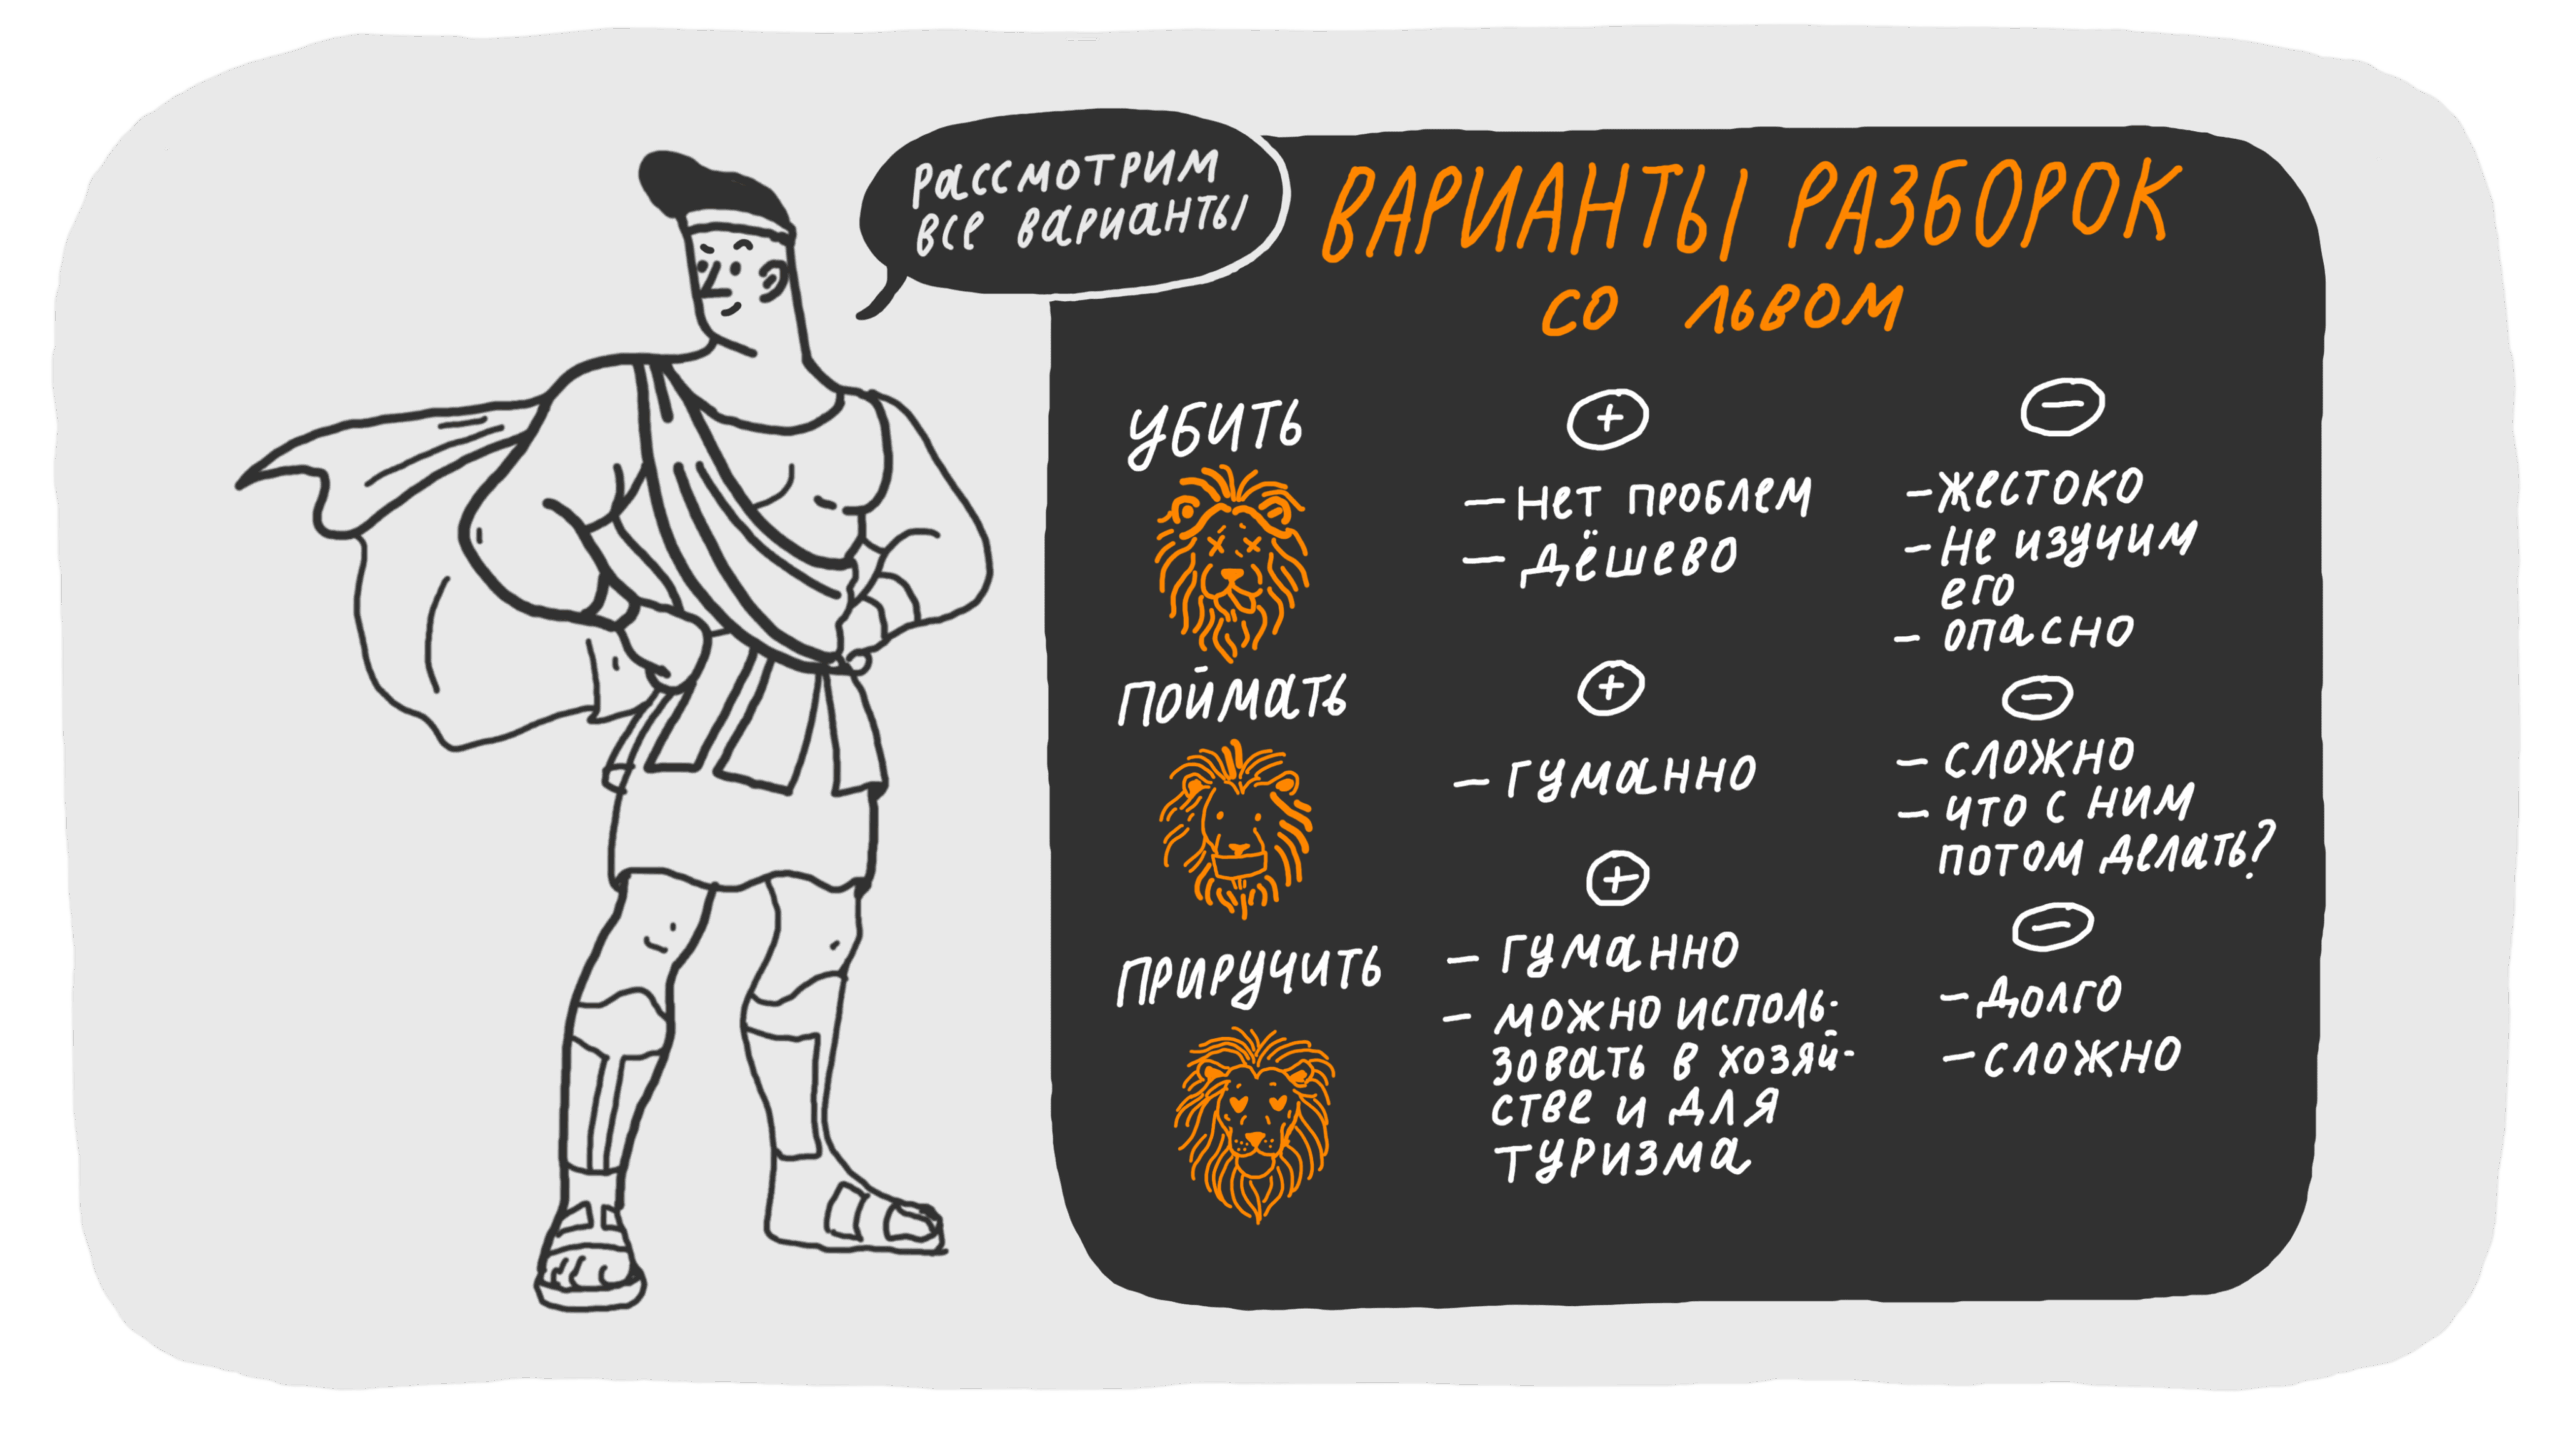 Рассмотрим
все варианты
ВАРИАНТЫ РАЗБОРОК
СО ЛЬВОМ
УБИТЬ
+
— нет проблем
— дёшево
—
– жестоко
– не изучим
его
– опасно
ПОЙМАТЬ
+
– гуманно
—
– сложно
– что с ним
потом делать?
ПРИРУЧИТЬ
+
– гуманно
– можно исполь-
зовать в хозяй-
стве и для
туризма
—
– долго
– сложно